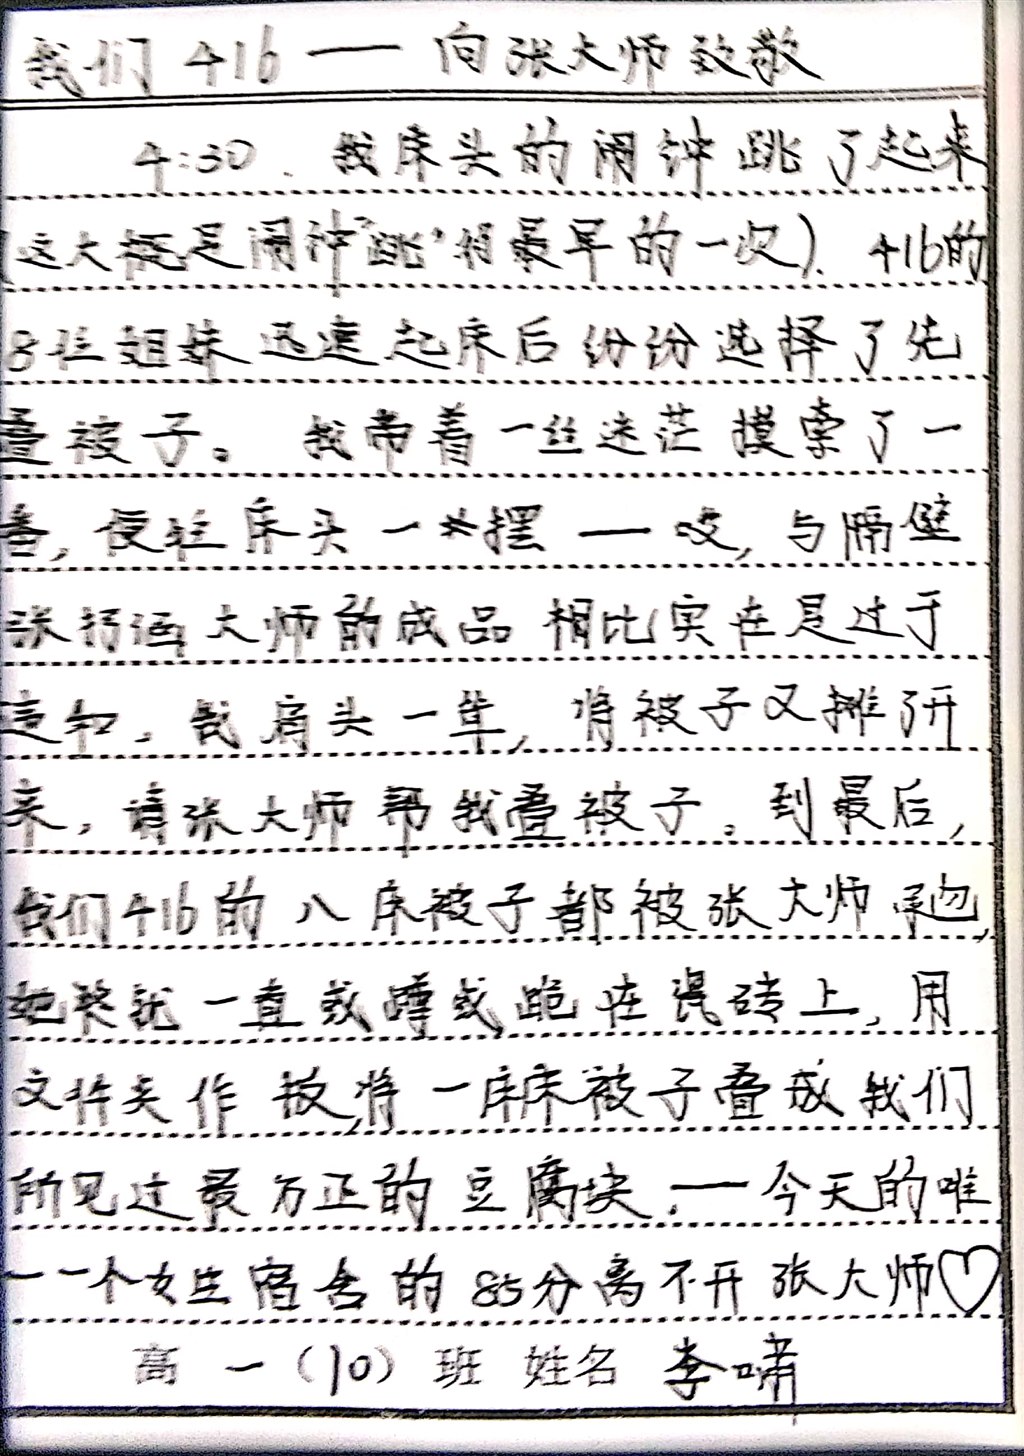 我们416——向张大师致敬
4:30.我床头的闹钟跳了起来
(这大概是闹钟"跳"得最早的一次).416的
8位姐妹迅速起床后纷纷选择了先
叠被子。我带着一丝迷茫摸索了一
番,便往床头一摆——哎,与隔壁
张抒涵大师的成品相比实在是过于
逊色.我肩头一耸,将被子又摊开
来,请张大师帮我叠被子。到最后,
我们416的八床被子都被张大师承包,
她一直或蹲或跪在瓷砖上,用
文件夹作板,将一床床被子叠成我们
所见过最方正的豆腐块.——今天的唯
一一个女生宿舍的85分离不开张大师♡
高一(10)班 姓名 李啸